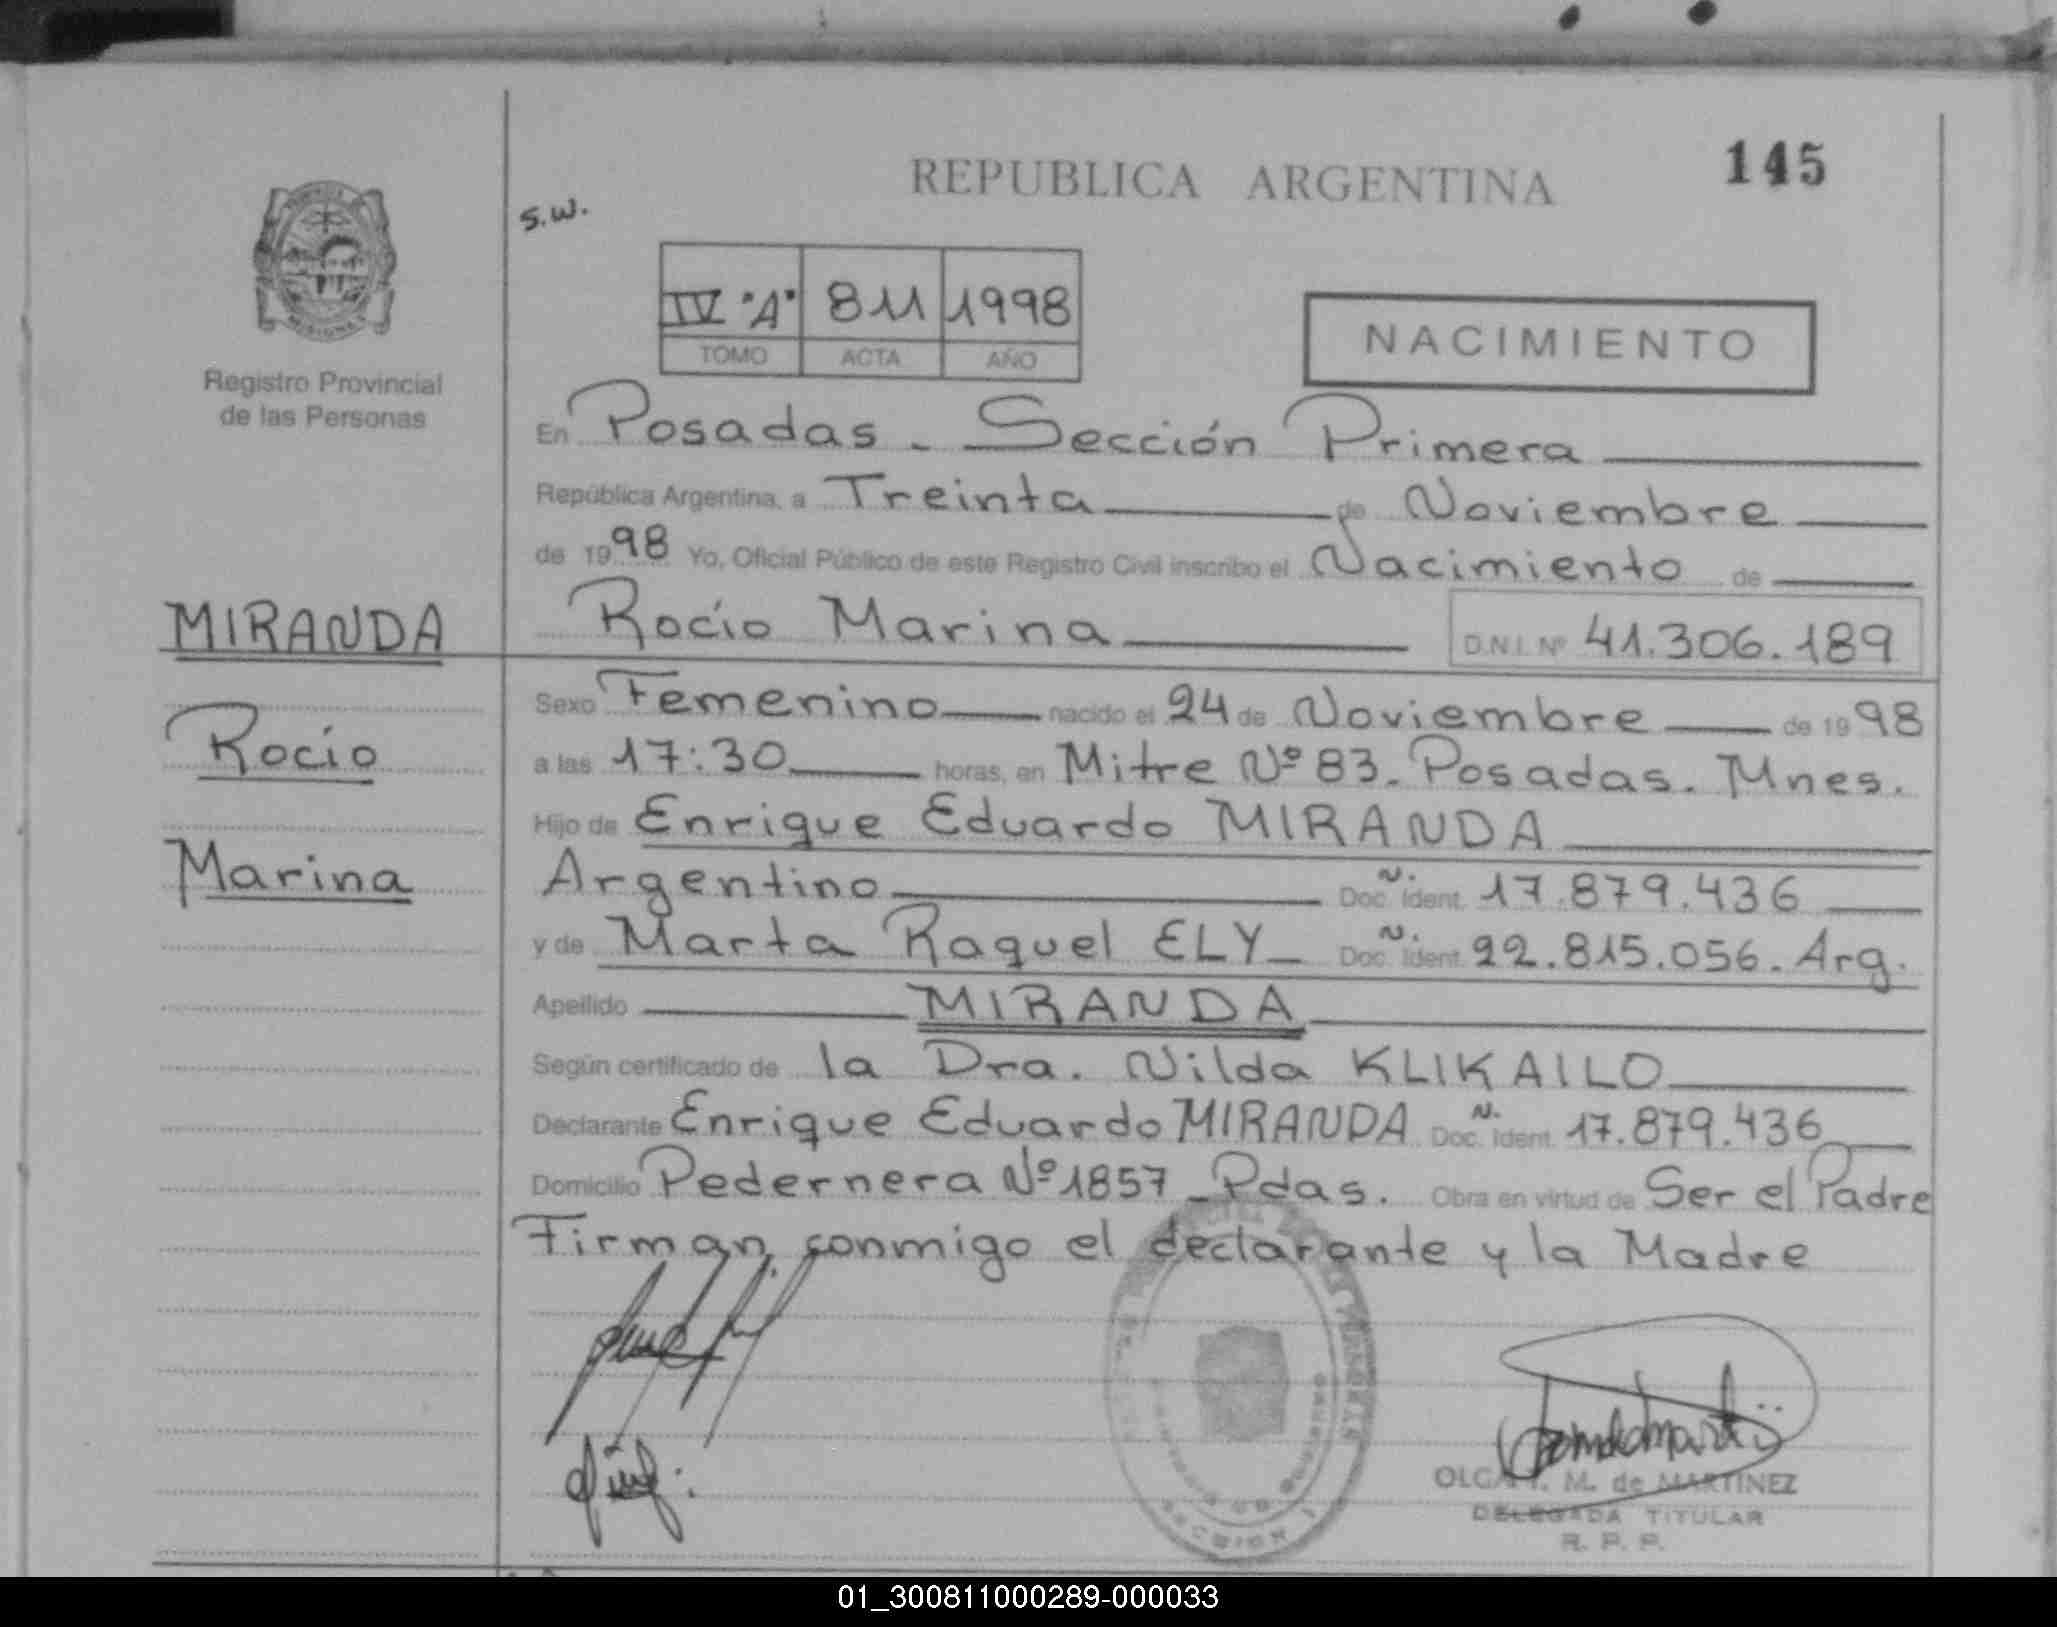 REPUBLICA ARGENTINA
145
s.w.
IV "A" 811 1998
TOMO ACTA AÑO
NACIMIENTO
Registro Provincial
de las Personas
En Posadas - Sección Primera
República Argentina, a Treinta de Noviembre
de 1998 Yo, Oficial Público de este Registro Civil inscribo el Nacimiento de
MIRANDA
Rocío Marina D.N.I. Nº 41.306.189
Sexo Femenino nacido el 24 de Noviembre de 1998
Rocío
a las 17:30 horas, en Mitre Nº 83. Posadas. Mnes.
Hijo de Enrique Eduardo MIRANDA
Marina
Argentino Doc. N. Ident. 17.879.436
y de Marta Raquel ELY Doc. N. Ident. 22.815.056. Arg.
Apellido MIRANDA
Según certificado de la Dra. Nilda KLIKAILO
Declarante Enrique Eduardo MIRANDA Doc. N. Ident. 17.879.436
Domicilio Pedernera Nº 1857 - Pdas. Obra en virtud de Ser el Padre
Firman conmigo el declarante y la Madre
OLGA M. de MARTINEZ
DELEGADA TITULAR
R. P. P.
SECCION 1
01_300811000289-000033